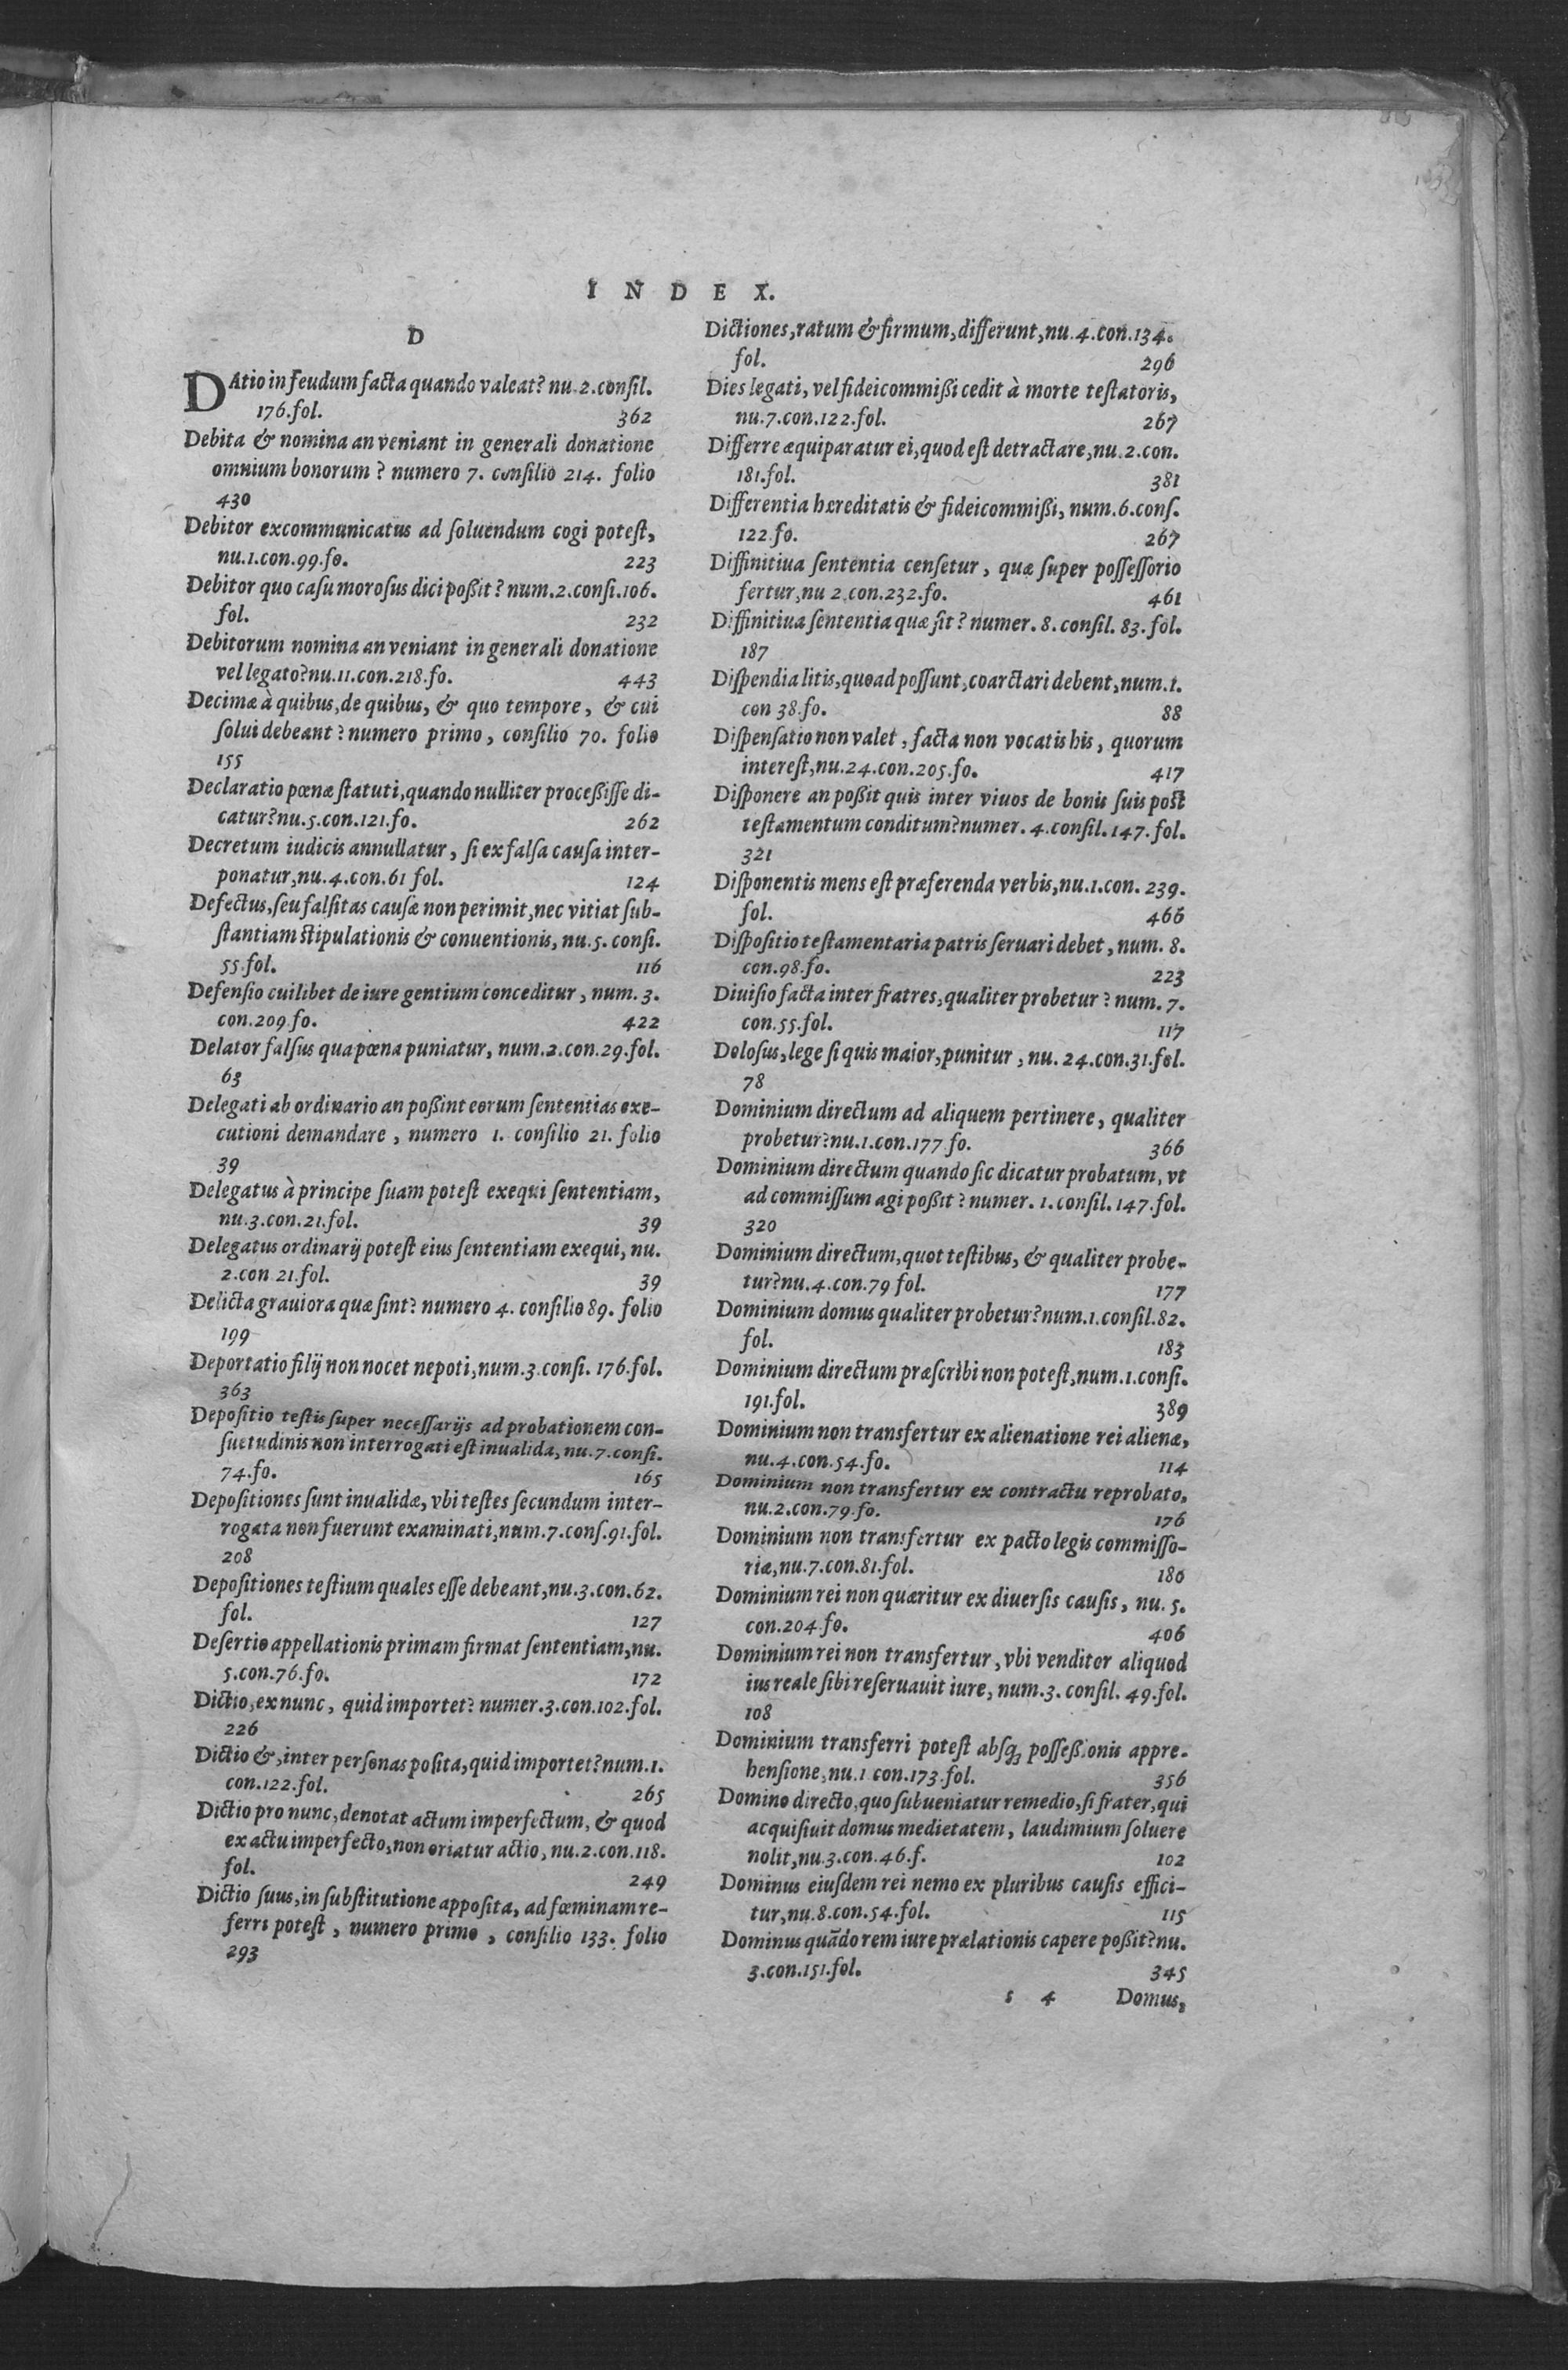 INDEX.
D
DAtio in feudum facta quando valeat? nu.2.consil.
176.fol. 362
Debita & nomina an veniant in generali donatione
omnium bonorum? numero 7. consilio 214. folio
430
Debitor excommunicatus ad soluendum cogi potest,
nu.1.con.99.fo. 223
Debitor quo casu morosus dici poßit? num.2.consi.106.
fol. 232
Debitorum nomina an veniant in generali donatione
vel legato?nu.11.con.218.fo. 443
Decimæ à quibus, de quibus, & quo tempore, & cui
solui debeant? numero primo, consilio 70. folio
155
Declaratio pœnæ statuti, quando nulliter proceßisse di-
catur?nu.5.con.121.fo. 262
Decretum iudicis annullatur, si ex falsa causa inter-
ponatur,nu.4.con.61 fol. 124
Defectus, seu falsitas causæ non perimit, nec vitiat sub-
stantiam stipulationis & conuentionis, nu.5. consi.
55.fol. 116
Defensio cuilibet de iure gentium conceditur, num.3.
con.209.fo. 422
Delator falsus qua pœna puniatur, num.2.con.29.fol.
63
Delegati ab ordinario an poßint eorum sententias exe-
cutioni demandare, numero 1. consilio 21. folio
39
Delegatus à principe suam potest exequi sententiam,
nu.3.con.21.fol. 39
Delegatus ordinarij potest eius sententiam exequi, nu.
2.con.21.fol. 39
Delicta grauiora quæ sint? numero 4. consilio 89. folio
199
Deportatio filij non nocet nepoti, num.3.consi. 176.fol.
363
Depositio testis super necessarijs ad probationem con-
suetudinis non interrogati est inualida, nu.7.consi.
74.fo. 165
Depositiones sunt inualidæ, vbi testes secundum inter-
rogata non fuerunt examinati, num.7.cons.91.fol.
208
Depositiones testium quales esse debeant, nu.3.con.62.
fol. 127
Desertio appellationis primam firmat sententiam, nu.
5.con.76.fo. 172
Dictio, ex nunc, quid importet? numer.3.con.102.fol.
226
Dictio &, inter personas posita, quid importet?num.1.
con.122.fol. 265
Dictio pro nunc, denotat actum imperfectum, & quod
ex actu imperfecto, non oriatur actio, nu.2.con.118.
fol. 249
Dictio suus, in substitutione apposita, ad fœminam re-
ferri potest, numero primo, consilio 133. folio
293
Dictiones, ratum & firmum, differunt, nu.4.con.134.
fol. 296
Dies legati, vel fideicommißi cedit à morte testatoris,
nu.7.con.122.fol. 267
Differre æquiparatur ei, quod est detractare, nu.2.con.
181.fol. 381
Differentia hæreditatis & fideicommißi, num.6.cons.
122.fo. 267
Diffinitiua sententia censetur, quæ super possessorio
fertur, nu 2.con.232.fo. 461
Diffinitiua sententia quæ sit? numer. 8. consil. 83. fol.
187
Dispendia litis, quoad possunt, coarctari debent, num.1.
con 38.fo. 88
Dispensatio non valet, facta non vocatis his, quorum
interest, nu.24.con.205.fo. 417
Disponere an poßit quis inter viuos de bonis suis post
testamentum conditum?numer. 4.consil.147.fol.
321
Disponentis mens est præferenda verbis, nu.1.con. 239.
fol. 466
Dispositio testamentaria patris seruari debet, num. 8.
con.98.fo. 223
Diuisio facta inter fratres, qualiter probetur? num. 7.
con.55.fol. 117
Dolosus, lege si quis maior, punitur, nu. 24.con.31.fol.
78
Dominium directum ad aliquem pertinere, qualiter
probetur?nu.1.con.177.fo. 366
Dominium directum quando sic dicatur probatum, vt
ad commissum agi poßit? numer. 1. consil. 147.fol.
320
Dominium directum, quot testibus, & qualiter probe-
tur?nu.4.con.79 fol. 177
Dominium domus qualiter probetur?num.1.consil.82.
fol. 183
Dominium directum præscribi non potest, num.1.consi.
191.fol. 389
Dominium non transfertur ex alienatione rei alienæ,
nu.4.con.54.fo. 114
Dominium non transfertur ex contractu reprobato,
nu.2.con.79.fo. 176
Dominium non transfertur ex pacto legis commisso-
riæ, nu.7.con.81.fol. 180
Dominium rei non quæritur ex diuersis causis, nu. 5.
con.204.fo. 406
Dominium rei non transfertur, vbi venditor aliquod
ius reale sibi reseruauit iure, num.3. consil. 49.fol.
108
Dominium transferri potest absq; posseßionis appre-
hensione, nu.1 con.173.fol. 356
Domino directo, quo subueniatur remedio, si frater, qui
acquisiuit domus medietatem, laudimium soluere
nolit, nu.3.con.46.f. 102
Dominus eiusdem rei nemo ex pluribus causis effici-
tur, nu.8.con.54.fol. 115
Dominus quādo rem iure prælationis capere poßit?nu.
3.con.151.fol. 345
s 4 Domus,